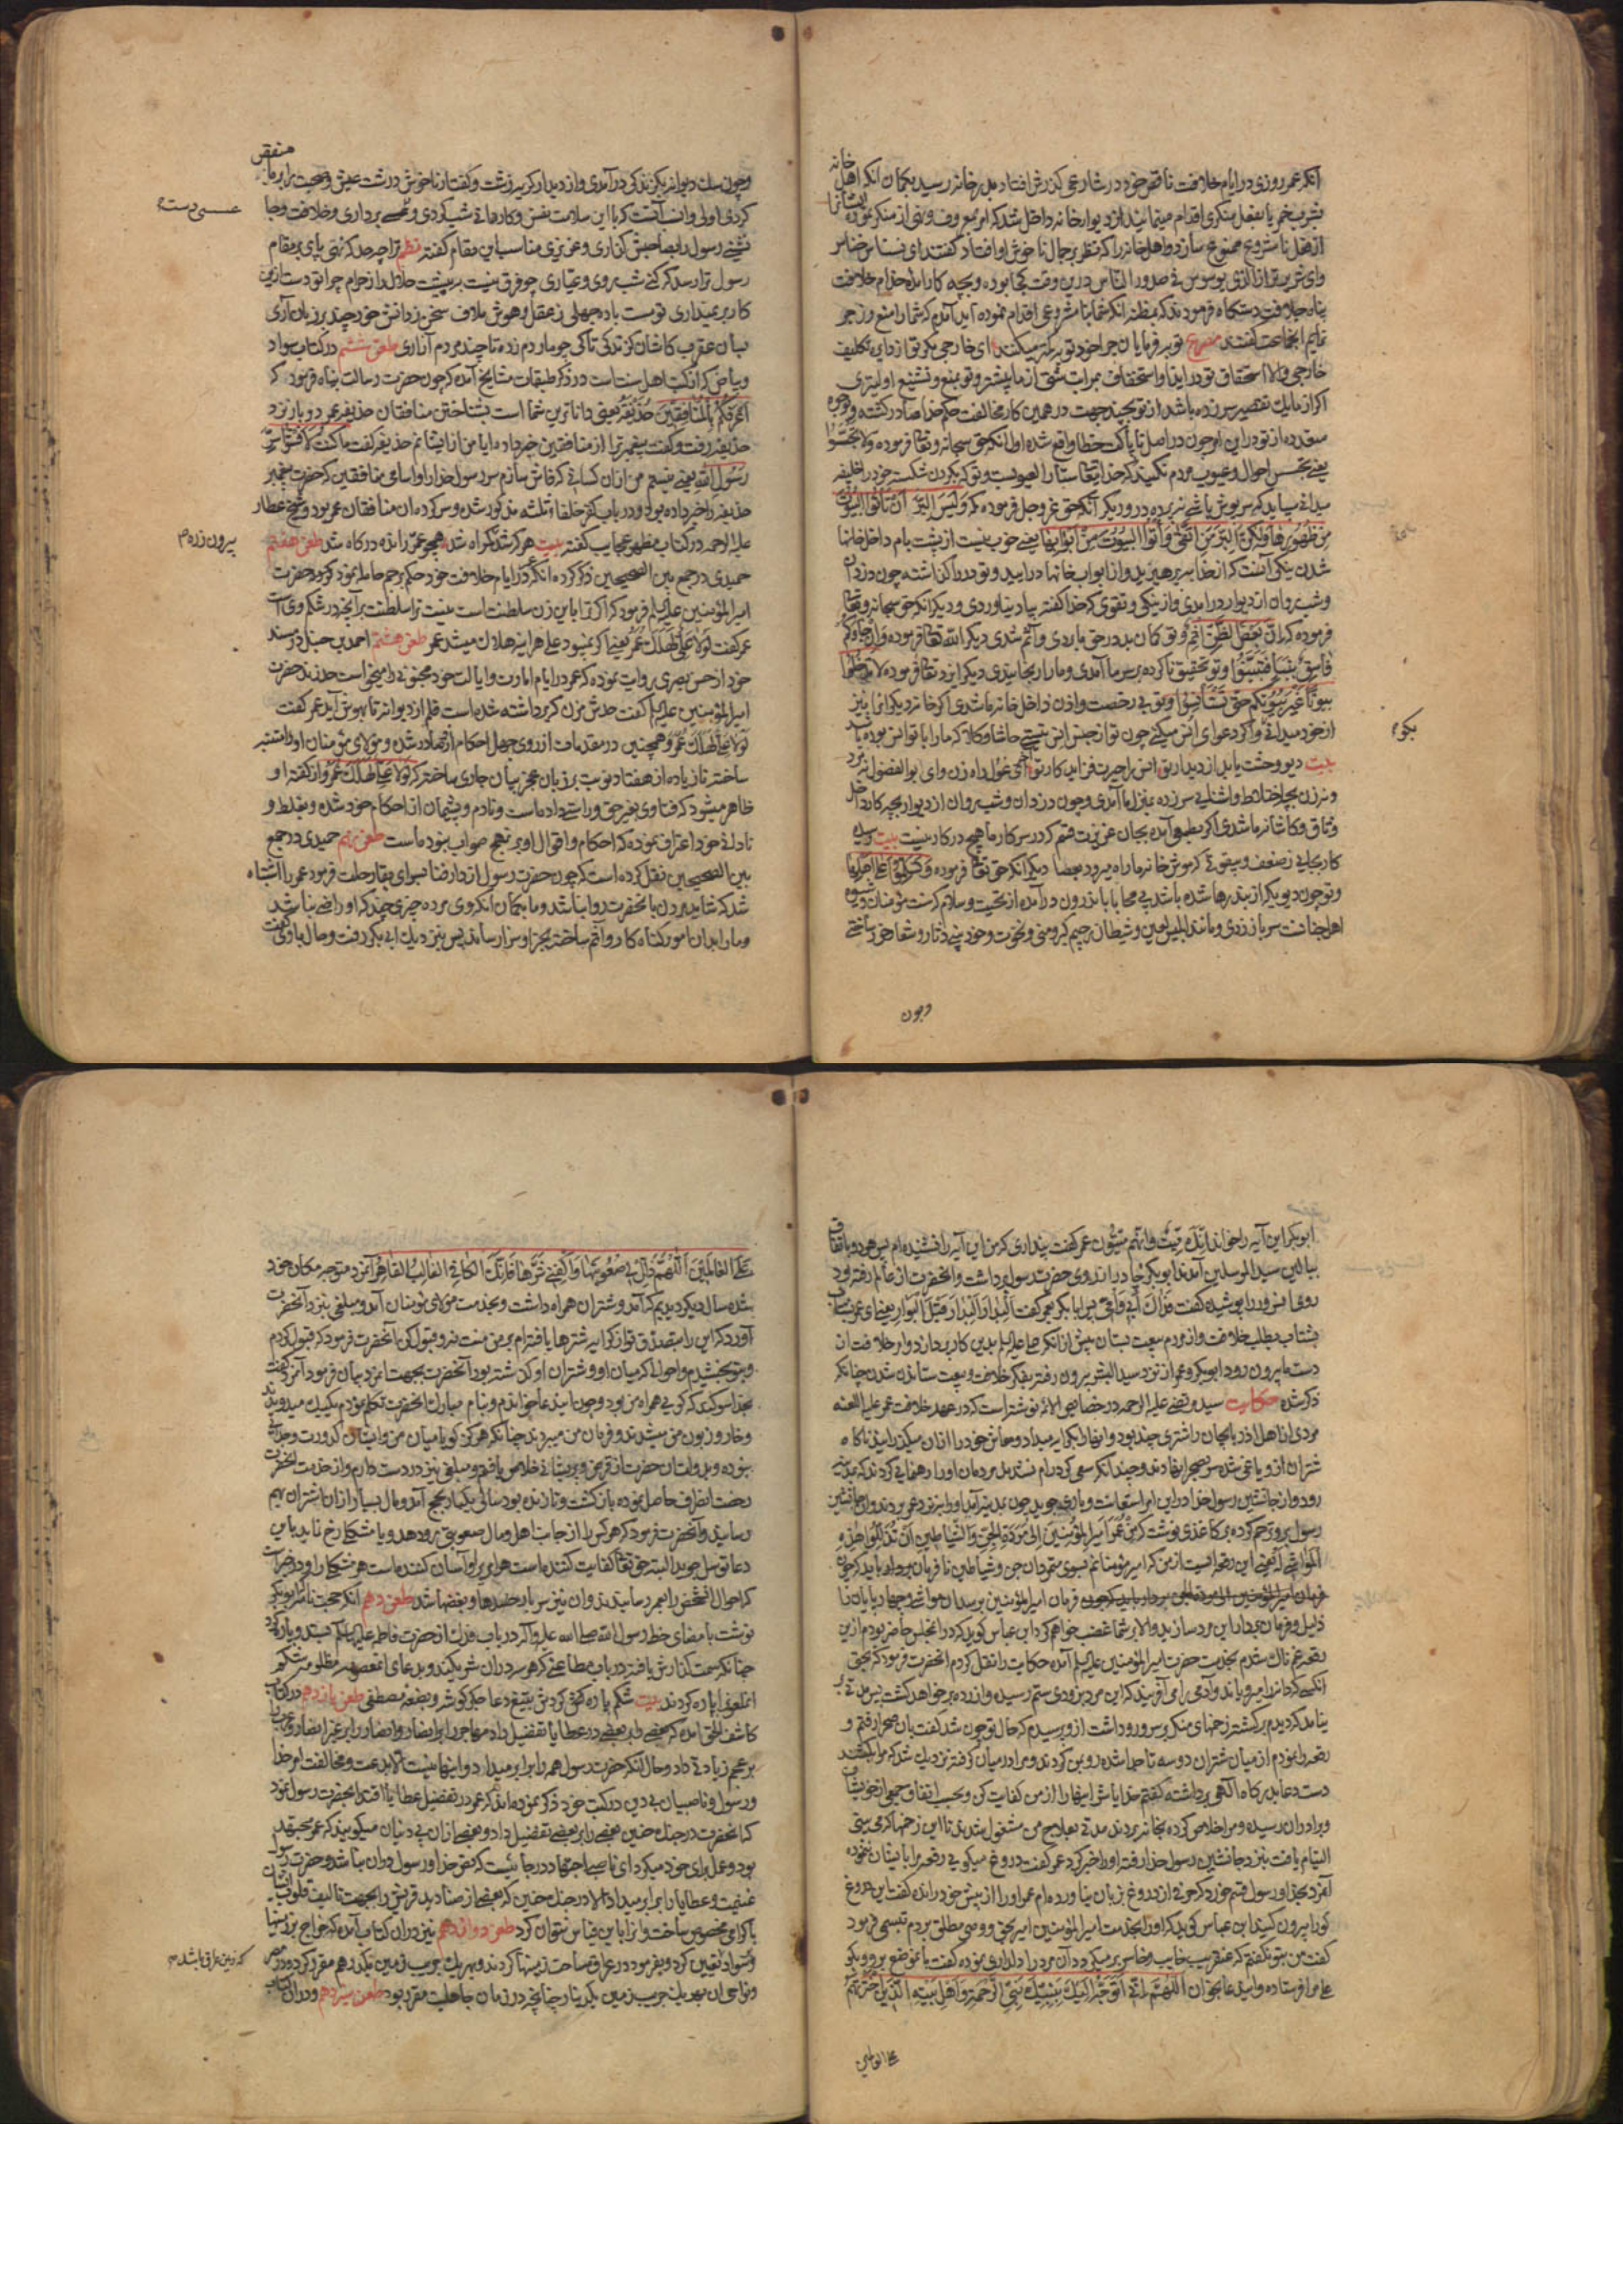 آنکه عمر روزی در ایام خلافت ناقص خود در شارعی گذرش افتاد بدر خانه رسید بگمان آنکه اهل خانه
بشرب خمر یا بفعل منکری اقدام مینمایند از دیوار خانه داخل شد که امر بمعروف و نهی از منکر نموده ایشانرا
از فعل نامشروع ممنوع سازد و اهل خانه را که نظر بر جمال ناخوش او افتاد گفتند ای نسناس خناس
وای شریرتر از الذی یوسوس فی صدور الناس درین وقت کجا بوده و بچه کار آمده خدام خلافت
پناه جلافت دستگاه فرمودند که بمظنه آنکه شما بنامشروعی اقدام نموده اید آمدم که شما را منع و زجر
نمایم آنجماعت گفتند مصرع توبه فرمایان چرا خود توبه کمتر میکنند ای خارجی مگر تو از دایره تکلیف
خارجی والا استحقاق تو در ایذا و استخفاف بمراتب شتی از ما بیشتر و تو بمنع و تشنیع اولیتری
اگر از ما یک تقصیر سرزده باشد از تو بچند جهت در همین کار مخالفت حکم خدا صادر گشته و بوجوه
متعدده از تو در این امر چون در اصل ناپاکت خطا واقع شده اول آنکه حق سبحانه و تعالی فرموده ولا تجسسوا
یعنی تجسس احوال و عیوب مردم نکنید که خدای تعالی ستار العیوبست و تو که بگردن شکسته خود را خلیفه
میدانی میباید که سرپوش باشی نه پرده در و دیگر آنکه حق عز و جل فرموده که ولیس البر ان تاتوا البیوت
من ظهورها ولکن البر من اتقی واتوا البیوت من ابوابها یعنی خوب نیست از پشت بام داخل خانها
شدن نیکی آنست که از خدا بپرهیزید و از ابواب خانها در آیید و تو در را گذاشته چون دزدان
و شبروان از دیوار در آمدی و از نیکی و تقوی که خدا گفته بیاد نیاوردی و دیگر آنکه حق سبحانه و تعالی
فرموده که ان بعض الظن اثم و تو گمان بد در حق ما بردی و آثم شدی دیگر الله تعالی فرموده وان جاءکم
فاسق بنبا فتبینوا و تو تحقیق ناکرده بر سر ما آمدی و ما را رنجانیدی دیگر ایزد تعالی فرموده لا تدخلوا
بیوتا غیر بیوتکم حتی تستانسوا و تو بی رخصت و اذن داخل خانه ما شدی اگر خانه دیگرانرا نیز
از خود میدانی و اگر دعوای انس میکنی چون تو از جنس انس نیستی حاشا و کلا که ما را با تو انس بوده باشد
بیت دیو وحشت یابد از دیدار تو انس را حیرت فزاید کار تو ای غول راه زن و ای بوالفضول نه مرد
و نه زن بچه اختلاط و آشنائی سرزده بمنزل ما آمدی و چون دزدان و شبروان از دیوار بچه کار داخل
وثاق و کاشانه ما شدی اگر بطمع آمده بجان عزیزت قسم که در سرکار ما هیچ در کار نیست بیت رسیده
کار بجائی ز ضعف و بیقوتی که موش خانه ما راه میرود بعصا دیگر آنکه حق تعالی فرموده و تسلموا علی اهلها
و تو چون دیو که از بند رها شده باشد بی محابا باندرون در آمده از تحیت و سلام که سنت مؤمنان و شیوه
اهل جنانست سر باز زدی و مانند ابلیس لعین و شیطان رجیم کبر و منی و نخوت و خود بینی دثار و شعار خود ساختی
بگو م
و چون
و چون سگ دیوانه بگزندگی در آمدی و از دیدار کریه زشت و گفتار ناخوش درشت عیش و صحبت را بر ما منغص
کردی اولی و انسب آنست که با این سلامت نفس و کارهای شبگردی و برداری و خلافت و جا
نشینی رسول را بصاحبش گذاری و عزیزی مناسب این مقام گفته نظم ترا چه حد که نهی پای بر مقام
رسول ترا رسد که کنی شب روی و عیاری چو فرق نیست به پیشت حلال را ز حرام چرا تو دست ازین
کار بر نمیداری تو مست باده جهلی ز عقل و هوش ملاف سخن ز دانش خود چند بر زبان آری
بسان عقرب کاشان گزندگی تا کی چو مار دم زده تا چند مردم آزاری طعن ششم در کتاب سواد
و بیاض که از کتب اهل سنت است در ذکر طبقات مشایخ آمده که چون حضرت رسالت پناه فرمود که
اعرفکم بالمنافقین حذیفة یعنی داناترین شما است بشناختن منافقان حذیفه عمر دو بار نزد
حذیفه رفت و گفت پیغمبر ترا از منافقین خبر داده آیا من از ایشانم حذیفه گفت ما کنت لافشی سر
رسول الله یعنی نیستم من از آن کسانی که فاش سازم سر رسول خدا را و اسامی منافقین که حضرت پیغمبر
حذیفه را خبر داده بود و در باب کفر خلفاء ثلثه مذکور شده و سرکرده ان منافقان عمر بود و شیخ عطار
علیه الرحمه در کتاب مظهر عجایب گفته بیت هر که شد گمراه شد همچو عمر رانده درگاه شد طعن هفتم
حمیدی در جمع بین الصحیحین ذکر کرده آنکه در ایام خلافت خود حکم برجم حامله نمود که بود حضرت
امیر المؤمنین علیه السلم فرمود که اگر ترا با این زن سلطنت است نیست ترا سلطنت بر آنچه در شکم وی است
عمر گفت لولا علی لهلک عمر یعنی اگر نمیبود علی هر آینه هلاک میشد عمر طعن هشتم احمد بن حنبل در مسند
خود از حسن بصری روایت نموده که عمر در ایام امارت و ایالت خود مجنونی را میخواست حد زند حضرت
امیر المؤمنین علیه السلم گفت حدش مزن که برداشته شده است قلم از دیوانه تا بهوش آید عمر گفت
لولا علی لهلک عمر و همچنین در مقدمات از روی جهل احکام از عمر صادر شده و مولای مؤمنان او را متنبه
ساخته تا زیاده از هفتاد نوبت بر زبان عجز بیان جاری ساخته که لولا علی لهلک عمر و از گفته او
ظاهر میشود که فتاوی بغیر حق و راستی داده است و نادم و پشیمان از احکام خود شده و بغلط و
نادانی خود اعتراف نموده که احکام و اقوال او بر نهج صواب نبوده است طعن نهم حمیدی در جمع
بین الصحیحین نقل کرده است که چون حضرت رسول از دار فنا بسوای بقا رحلت فرمود عمر را اشتباه
شد که شاید مردن بآنحضرت روا نباشد و ما بگمان آنکه وی مرده چیزی چند که او راضی نباشد
و ما را بدان امور گناه کار و آثم ساخته بجزا و سزا رساند پس بنزدیک ابی بکر رفت و حال باو گفت
بیرون زده م
ابوبکر این آیه را خواند انک میت وانهم میتون عمر گفت پنداری که من این آیه را نشنیده ام پس هر دو باتفاق
ببالین سید المرسلین آمدند ابوبکر چادر از روی حضرت رسول برداشت و آنحضرت از عالم رفته بود
روی انسرور را پوشیده گفت پس ابا بکر بعمر گفت البدار البدار قبل البوار یعنی ای عمر بشتاب
بشتاب بطلب خلافت و از مردم بیعت بستان پیش از آنکه علی علیه السلم بدین کار پردازد و امر خلافت از
دست ما بیرون رود ابوبکر و عمر از نزد سید البشر بیرون رفته بفکر خلافت و بیعت ستاندن شدند چنانکه
ذکر شده حکایت سید رضی علیه الرحمه در خصایص الائمه نوشته است که در عهد خلافت عمر علیه اللعنه
مردی از اهل آذربایجان را شتری چند بود و آنها را بکرایه میداد و معاش خود را از آن میگذرانید ناگاه
شتران از و یاغی شده سر بصحرا نهادند و چندانکه سعی کرد رام نشدند مردمان او را رهنمایی کردند که بمدینه
رود و از جانشین رسول خدا در این امر استعانت و یاری جوید چون بمدینه آمد او را نزد عمر بردند و آن جانشین
رسول بر و ترحم کرده بر کاغذی نوشت که من عمر امیر المؤمنین الی مردة الجن والشیاطین ان تذللوا هذه
المواشی له یعنی این رقعه ایست از من که امیر مؤمنانم بسوی متمردان جن و شیاطین نافرمان بردار باید که چون
فرمان امیر المؤمنین برسد آن مواشی و چهارپایان را
ذلیل و فرمان بردار این مرد سازید و الا بر شما غضب خواهم کرد ابن عباس گوید که در آنمجلس حاضر بودم از این
رقعه غمناک شدم بخدمت حضرت امیر المؤمنین علیه السلم آمده حکایت را نقل کردم آنحضرت فرمود که بحق
آنکسی که دانه را میرویاند و آدمی را می آفریند که این مرد بزودی ستم رسیده و آزرده بر خواهد گشت پس مدتی بر
نیامد که دیدم برگشته زخمهای منکر بر سر و رو داشت از و پرسیدم که حال تو چون شد گفت بآن صحرا رفتم و
رقعه را نمودم از میان شتران دو سه تا جدا شده رو بمن کردند و مرا در میان گرفته نزدیک شد که مرا بکشند
دست دعا بدرگاه الهی برداشته گفتم خدایا شر اینها را از من کفایت کن و بحسب اتفاق جمعی از خویشان
و برادران رسیده و مرا خلاص کرده بخانه بردند مدتی بعلاج من مشغول شدند تا این زخمها که می بینی
التیام یافت بنزد جانشین رسول خدا رفته او را خبر کرد عمر گفت دروغ میگویی رقعه مرا بایشان ننموده
آنمرد بخدا و رسول قسم خورد که حرفی از دروغ بزبان نیاورده ام عمر او را از پیش خود رانده گفت این دروغ
گو را بیرون کنید ابن عباس گوید که او را بخدمت امیر المؤمنین امیر بحق و وصی مطلق بردم تبسمی فرمود
گفت من بتو نگفتم که عنقریب خایب و خاسر بر میگردد آن مرد را دلداری نموده گفت بآنموضع برو و بگو
علی مرا فرستاده و این دعا بخوان اللهم انی اتوجه الیک بنبیک نبی الرحمة واهل بیته الذین اخترتهم
علی العالمین
علی العالمین اللهم ذلل لی صعوبتها واکفنی شرها فانک الکافی الغالب القاهر آنمرد متوجه مکان خود
شده سال دیگر دیدیم که آمد و شتران همراه داشت و بخدمت مولای مؤمنان آمد و مبلغی بنزد آنحضرت
آورد که این را بتصدق تو از کرایه شترها یافته ام بر من منت نه و قبول کن آنحضرت فرمود که قبول کردم
و بتو بخشیدم و احوالی که میان او و شتران او گذشته بود آنحضرت بجهت آنمرد بیان فرمود آنمرد گفت
بخدا سوگند که گویی همراه من بود و چون این دعا خواندم و بنام مبارک آنحضرت تکلم نمودم یک یک میدویدند
و خار و زبون من میشدند و فرمان من میبردند چنانکه هرگز گویا میان من و ایشان کدورت و جدائی
نبوده و بدولت آن حضرت از قرض و پریشانی خلاص یافتم و مبلغی نیز در دست دارم و از خدمت آنحضرت
رخصت انصراف حاصل نموده بازگشت و تا زنده بود سالی یکبار بحج آمد و مال بسیار از آن شتران بهم
رسانید و آنحضرت فرمود که هر کس را از جانب اهل و مال صعوبتی رو دهد و یا مشکلی رخ نماید باین
دعا توسل جوید البته حق تعالی کفایت کننده است هر امری را و آسان کننده است هر مشکلی را و در خبر است
که احوال آنشخص را بعمر رسانیدند و آن نیز سر بار حسدها و بغضها شد طعن دهم آنکه حجت نامه که ابوبکر
نوشت بامضای خط رسول الله صلی الله علیه وآله در باب فدک از حضرت فاطمه علیها السلم بستد و پاره کرد
چنانکه سمت گذارش یافته در باب مطاعنی که هر سه در آن شریکند و بدعای آنمعصومه مظلومه شکم
آنملعون را پاره کردند بیت شکم پاره کردش بتیغ دعا جگر گوشه و بضعه مصطفی طعن یازدهم در کتاب
کاشف الحق آمده که بعضی را بر بعضی در عطایا تفضیل داد مهاجر را بر انصار و انصار را بر غیر انصار و عرب را
بر عجم زیادتی داد و حال آنکه حضرت رسول همه را برابر میداد و اینها نیست الا بدعت و مخالفت امر خدا
و رسول و ناصبیان بی دین در کتب خود ذکر نموده اند که عمر در تفضیل عطایا اقتدا بحضرت رسول نمود
که آنحضرت در جنگ حنین بعضی را بر بعضی تفضیل داد و بعضی از آن بی دینان میگویند که عمر مجتهد
بود و عمل برای خود میکرد ای ناصبیا اجتهاد در جائیست که نص خدا و رسول در آن نباشد و حضرت رسول
غنیمت و عطایا را برابر میداد الا در جنگ حنین که بعضی از صنادید قریش را بجهت تألیف قلوب ایشان
باکرامی مخصوص ساخت و آنرا باین قیاس نتوان کرد طعن دوازدهم نیز در آن کتاب آمده که خراج بر زمینها
و سواد تعیین کرد و بفرمود در عراق مساحت زمینها کردند و بهر یک جریب زمین یکدرهم مقرر کرد و در مصر
و نواحی آن بهر یک جریب زمین یکدینار چنانچه در زمان جاهلیت مقرر بود طعن سیزدهم و در آن کتاب
که زمین عراق باشد م